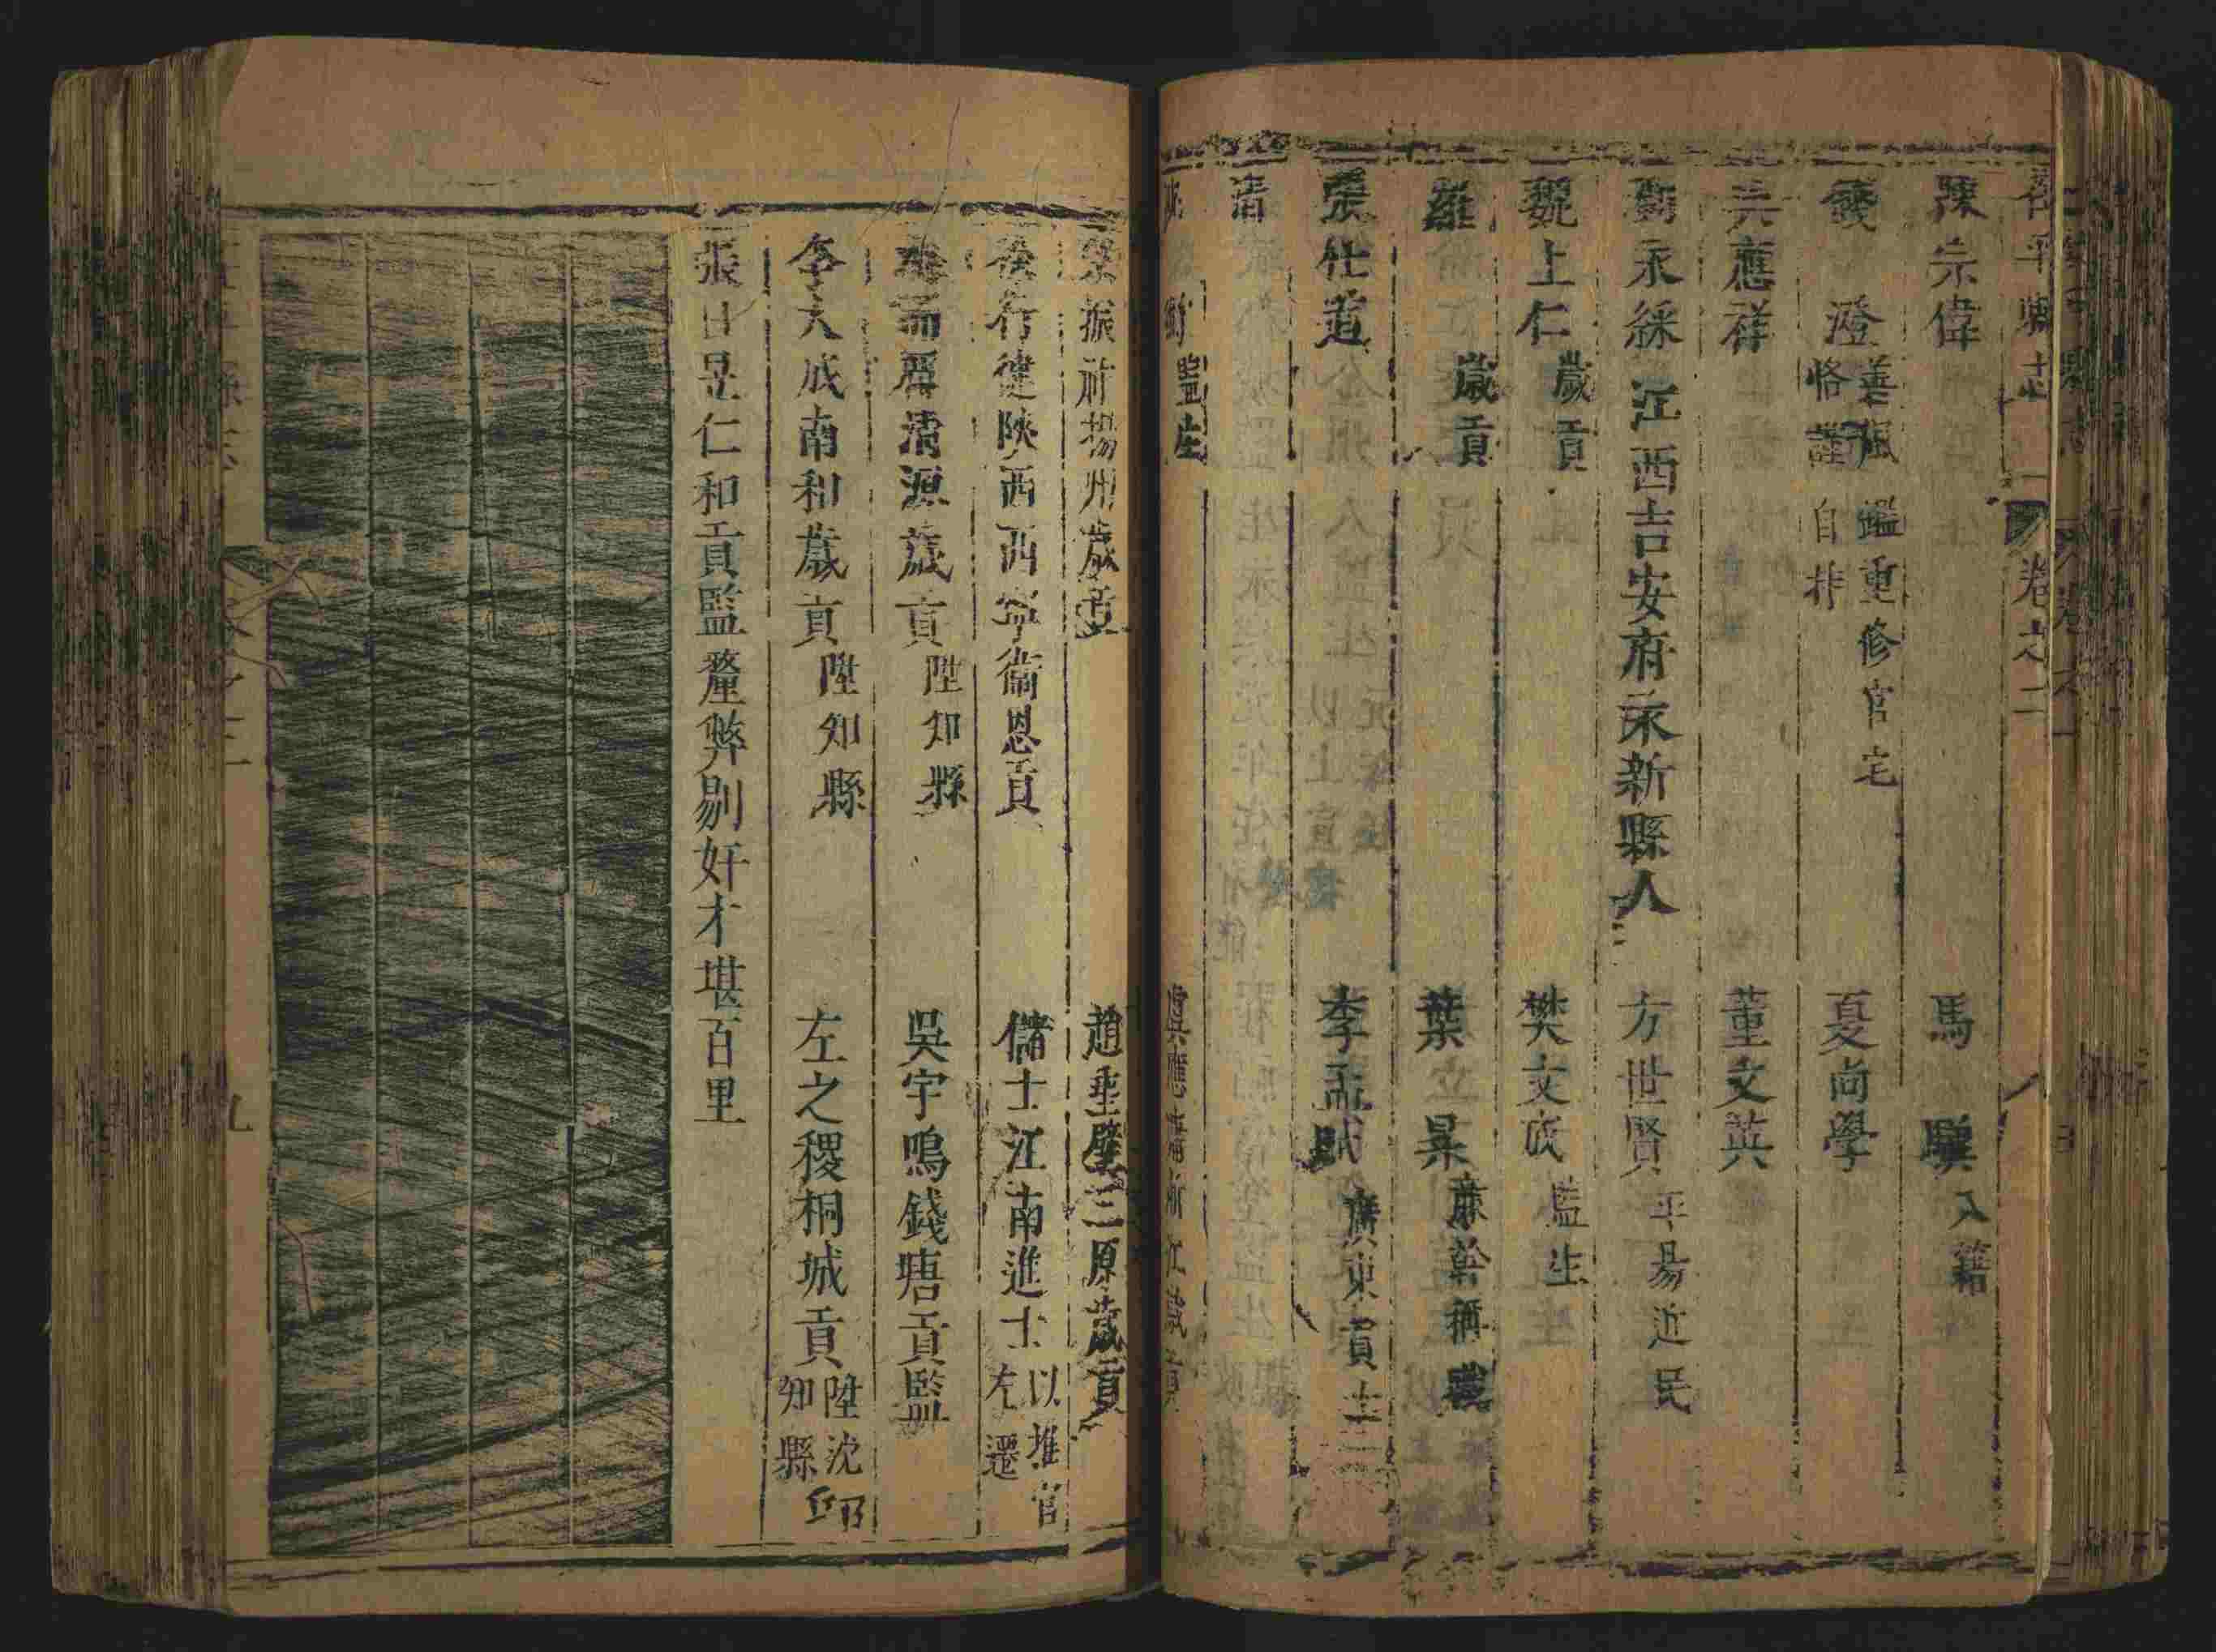 縣志 卷之二
陳宗偉 馬驥 入籍
澄 善風鑑重修官宅 恪謹自持 夏尚學
吳應祥 董文英
劉永綵 江西吉安府永新縣人 方世賢 平易近民
魏上仁 歲貢 樊文成 監生
羅 歲貢 葉立杲 廉幹稱職
張仕道 李孟 廣東貢士
清
監生 虞應 浙江歲貢
振祚揚州歲貢 趙 三原歲貢
行健陝西西寧衞恩貢 儲士江南進士 以推官左遷
清源歲貢 陞知縣 吳宇鳴錢塘貢監
李大成南和歲貢 陞知縣 左之稷桐城貢 陞沈邱知縣
張日昱仁和貢監釐弊剔奸才堪百里
九